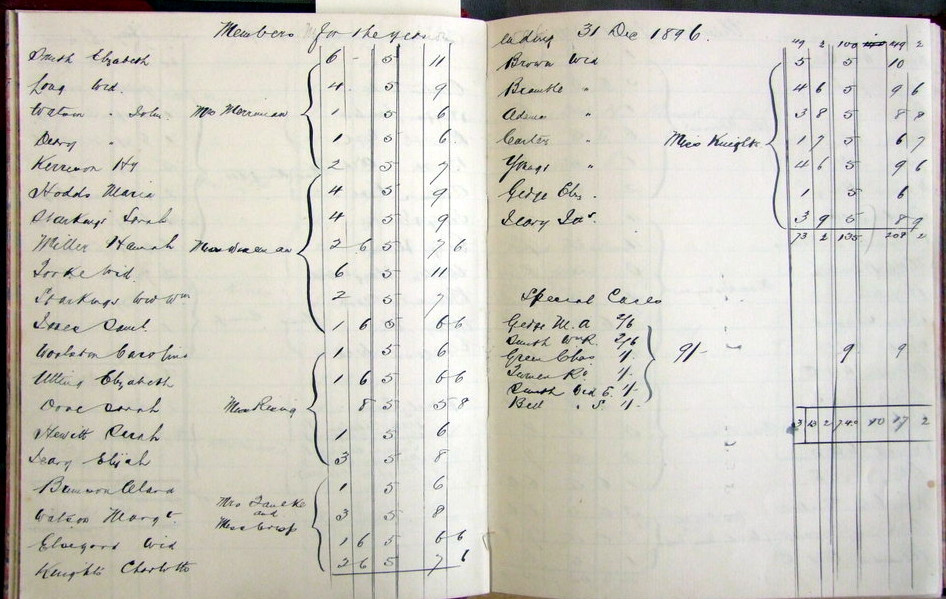 Members for the year
Smith Elizabeth 6 - 5 11
Long Wid. 4 5 9
Watson " John Mrs Merriman 1 5 6
Deary " 1 5 6
Kerrison Hy 2 5 7
Hodds Maria 4 5 9
Starkings Sarah 4 5 9
Miller Hannah 2 6 5 7 6
Wid. 6 5 11
Starkings Wid Wm 2 5 7
Saml 1 6 5 6 6
Woolston Caroline 1 5 6
Utting Elizabeth 1 6 5 6 6
Sarah Miss Rising 8 5 5 8
Hewitt Sarah 1 5 6
Deary Elijah 3 5 8
Clara 1 5 6
Watson Margt. Mrs Faulke and Miss Crisp 3 5 8
Wid 1 6 5 6 6
Knights Charlotte 2 6 5 7 6
ending 31 Dec 1896.
49 2 100 149 2
Brown Wid 5 5 10
" 4 6 5 9 6
Adams " 3 8 5 8 8
Carter " Miss Knights 1 7 5 6 7
Youngs " 4 6 5 9 6
Gedge Eliz. 1 5 6
Deary Jas. 3 9 5 8 9
73 2 135 208 2
Special Cases
Gedge M. A 2/6
Smith Wm R. 2/6
Green Chas 1/- 9/- 9 9
Turner Rd 1/-
Smith Wid E. 1/-
Bell " S. 1/-
3 13 2 7 4 0 10 17 2